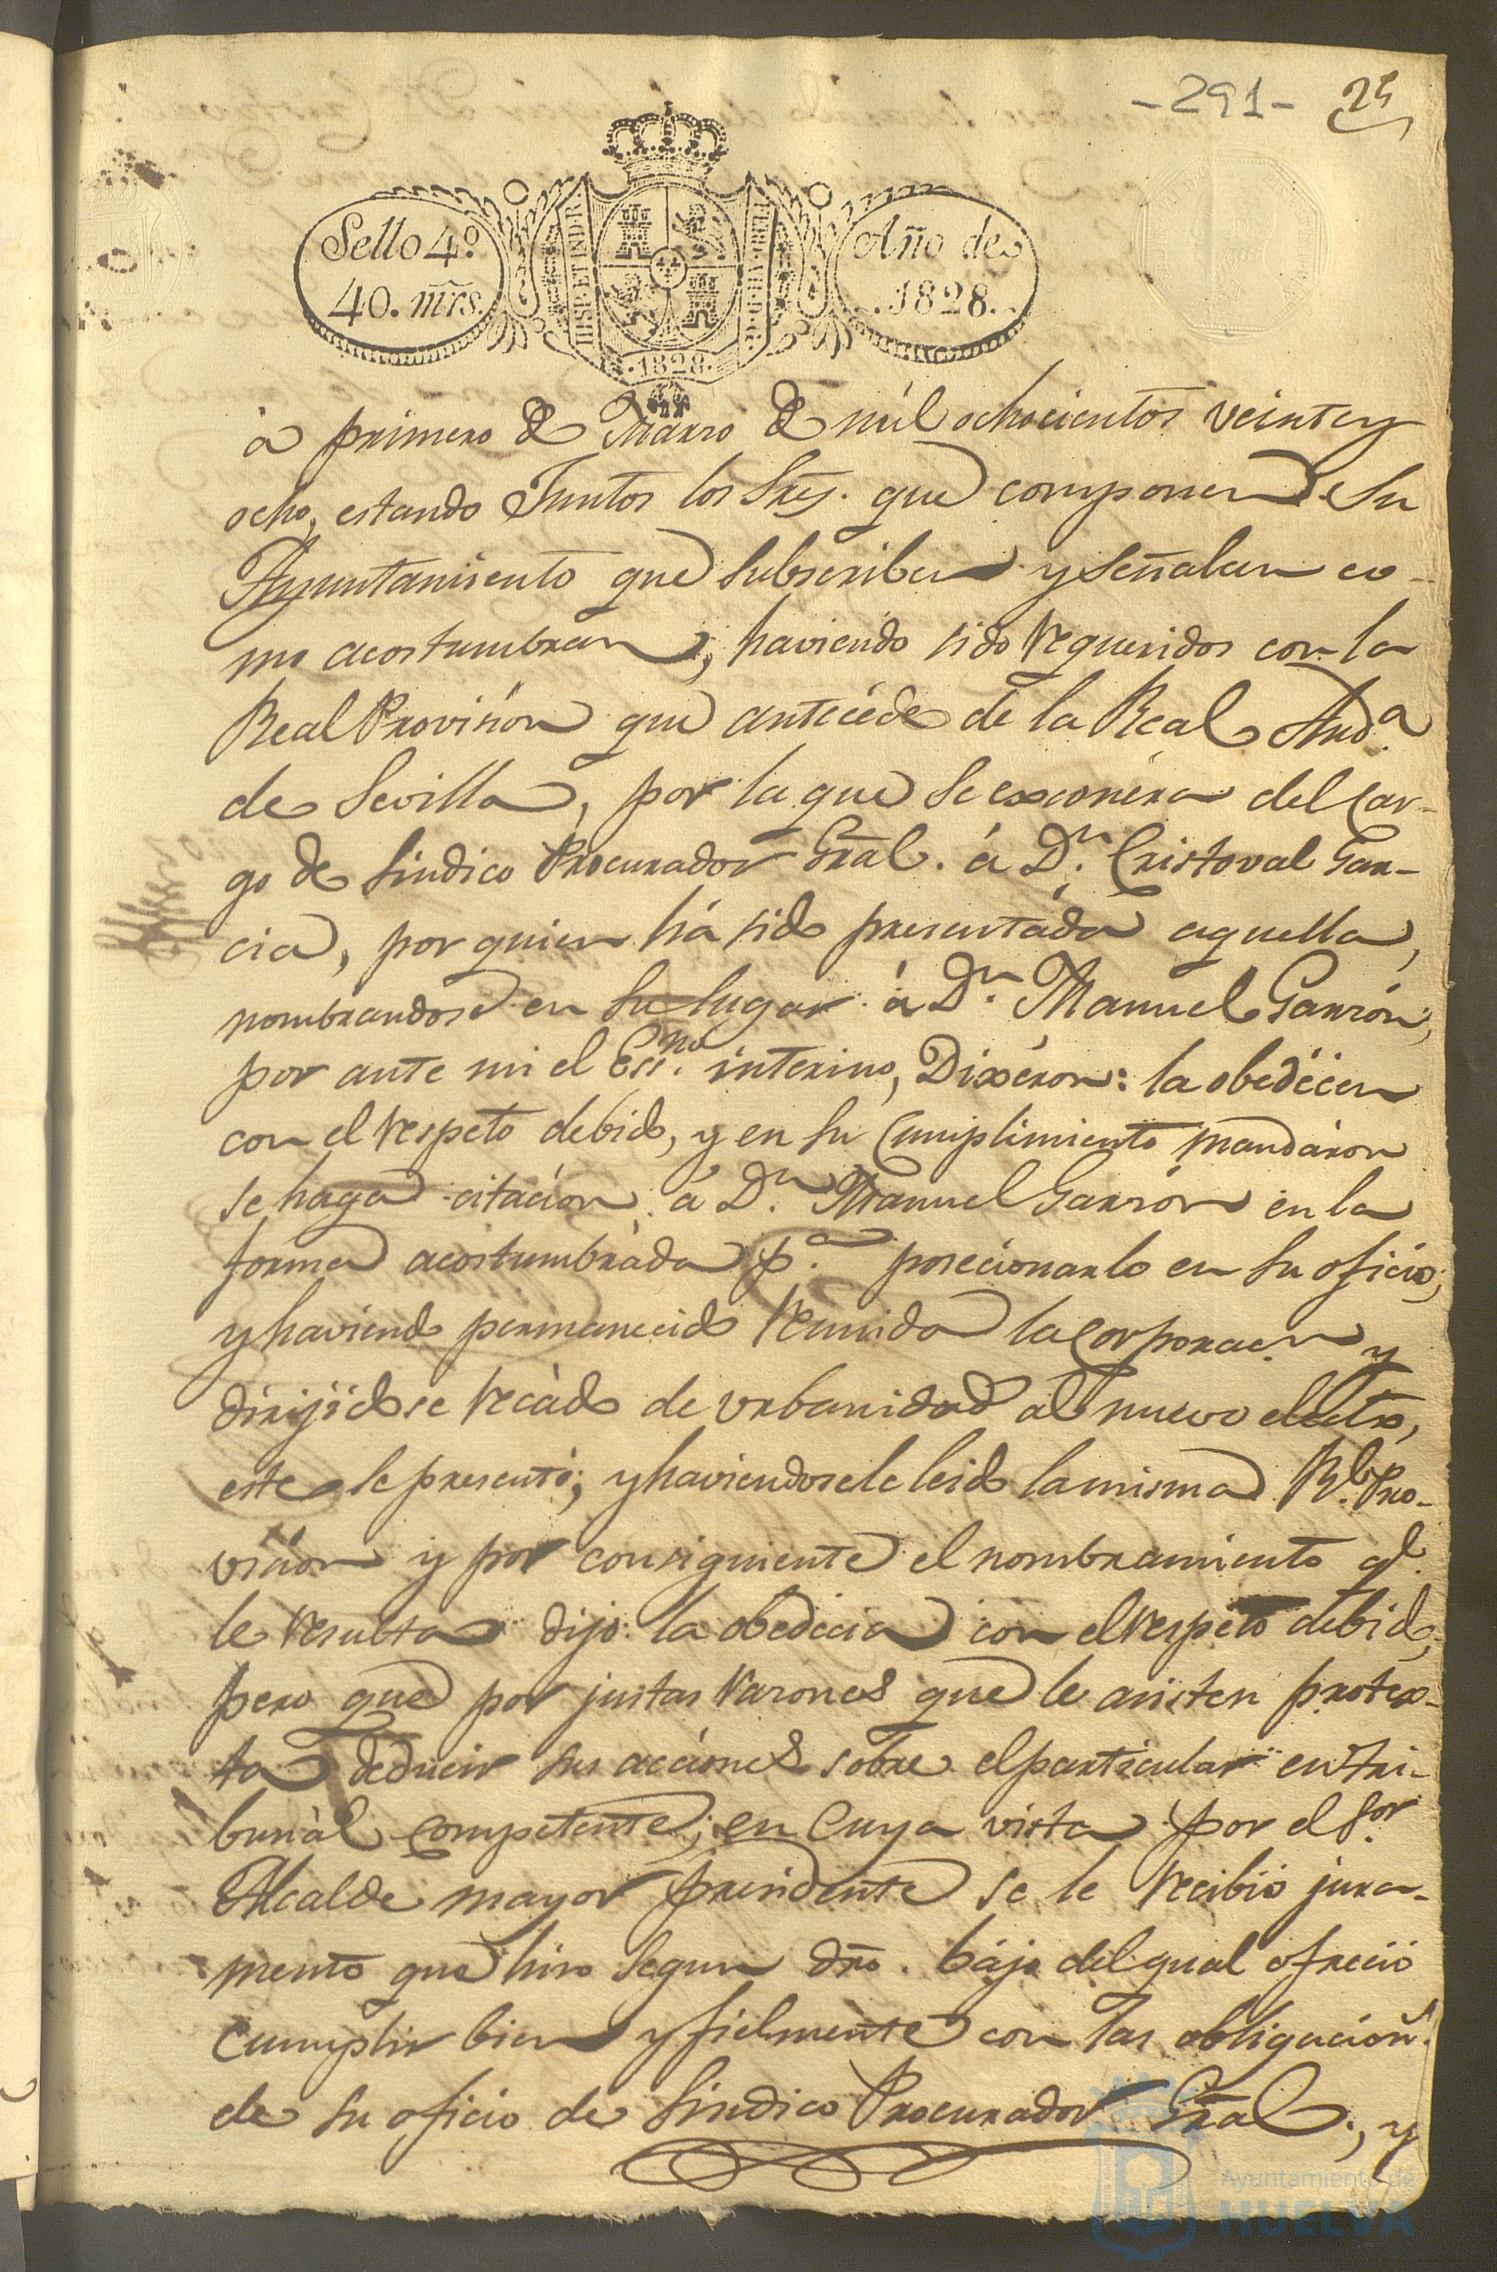 -291- 25
Sello 4º.
40. mrs.
HISP. ET IND. R.
Año de
1828.
.1828.
à primero de Marzo de mil ochocientos veinte y
ocho, estando Juntos los Sres. que componen Su
Ayuntamiento que subscriben y señalan co-
mo acostumbran, haviendo sido requeridos con la
Real Provision que antecéde de la Real Auda.
de Sevilla, por la que se exconéra del Car-
go de Sindico Procurador Gral. á Dn. Cristoval Gar-
cia, por quien há sido presentáda aquella,
nombrandose en su lugar à Dn. Manuel Garzón,
por ante mi el Essno. interino, Dixéron: la obedécen
con el respeto debido, y en su Cumplimiento mandáron
se haga citacion á Dn. Manuel Garzón en la
forma acostumbráda pa. posecionarlo en su oficio;
y haviendo permanecido reunida la Corporacn. y
dirijidose recádo de urbanidad al nuevo electo,
este se presentó; y haviendosele leido la misma Rl. Pro-
vision y por consiguiente el nombramiento ql.
le resulta dijo: la obedecia con el respeto debido,
pero que por justas razones que le asisten protex-
ta deducir sus acciones sobre el particular en tri-
bunál competente; en cuya vista por el Sor.
Alcalde mayor presidente se le recibió jura-
mento que hiso segun dro. bájo del qual ofreció
cumplir bien y fielmente con las obligacions.
de su oficio de Sindico Procurador Gral., y
Ayuntamiento de
HUELVA